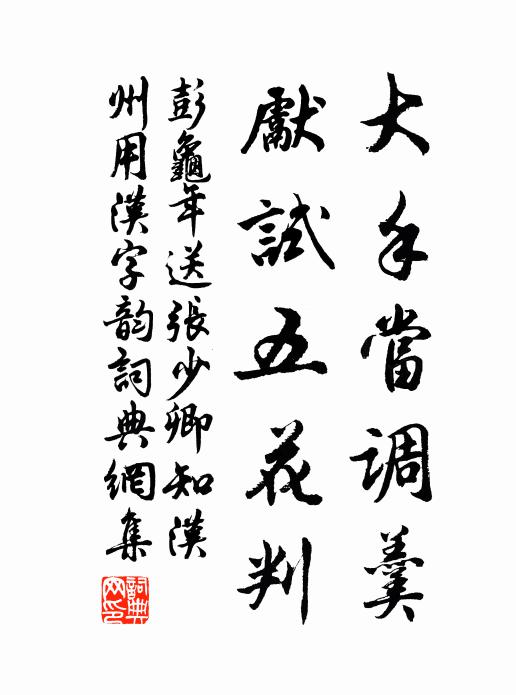 大手當調羹
獻試五花判
彭龜年送張少卿知漢
州用漢字韵詞典網集
詞典
网印